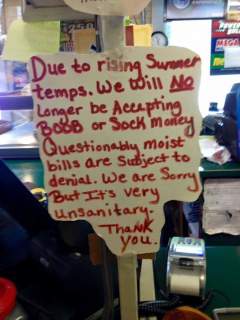 Due to rising Summer
temps. We Will NO
Longer be Accepting
BOOB or Sock Money
Questionably moist
bills are Subject to
denial. We are Sorry
But It's very
unsanitary.
Thank
you.
MEGA